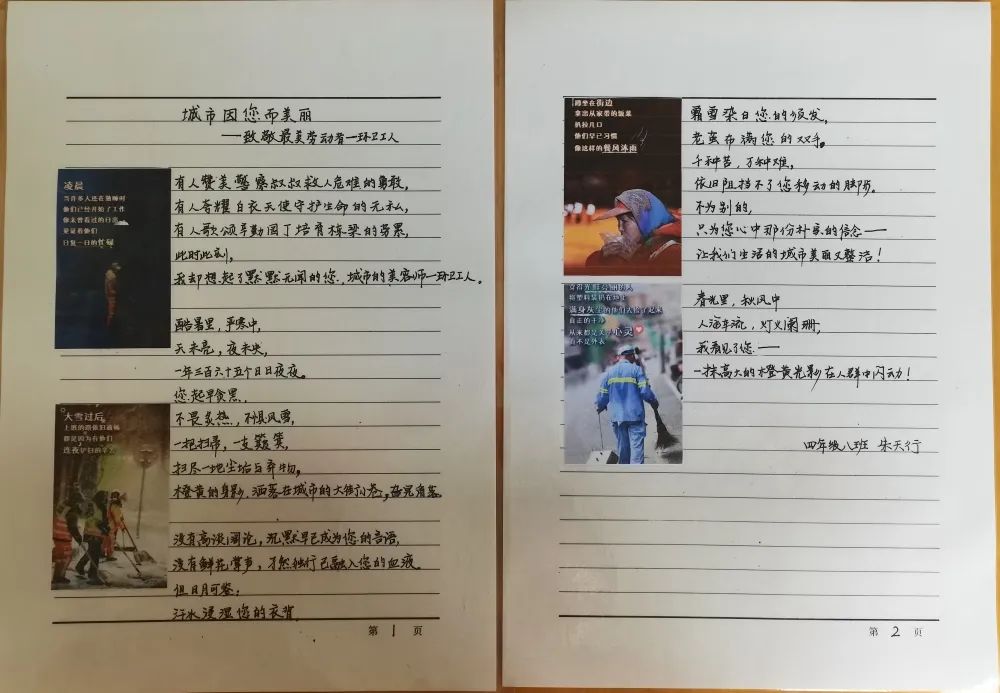 城市因您而美丽
——致敬最美劳动者—环卫工人
凌晨
当许多人还在熟睡时
他们已经开始了工作
你未曾看过的日出
见证着他们
日复一日的忙碌
有人赞美警察叔叔救人危难的勇敢，
有人夸耀白衣天使守护生命的无私，
有人歌颂辛勤园丁培育栋梁的劳累，
此时此刻，
我却想起了默默无闻的您，城市的美容师—环卫工人。
酷暑里，严寒中，
天未亮，夜未央，
一年三百六十五个日日夜夜。
您起早贪黑，
不畏炎热，不惧风雪，
一把扫帚，一支簸箕，
扫尽一地尘垢与弃物。
橙黄的身影，洒落在城市的大街小巷，
大雪过后
上班的路依旧通畅
都是因为有他们
连夜铲扫的辛苦
没有高谈阔论，沉默早已成为您的言语，
没有鲜花掌声，孑然独行已融入您的血液。
但日月可鉴：
汗水浸湿您的衣背
第 1 页
蹲坐在街边
拿出从家带的饭菜
扒拉几口
他们早已习惯
像这样的餐风沐雨
霜雪染白您的须发，
老茧布满您的双手。
千种苦，万种难，
依旧阻挡不了您移动的脚步。
不为别的，
只为您心中那份朴素的信念——
让我们生活的城市美丽又整洁！
将塑料袋扔在地上
满身灰尘的他们去捡了起来
真正的干净
从来都是关乎心灵
而不是外表
春光里，秋风中
人海车流，灯火阑珊，
我看见了您——
一抹高大的橙黄光影在人群中闪动！
四年级八班 朱天行
第 2 页